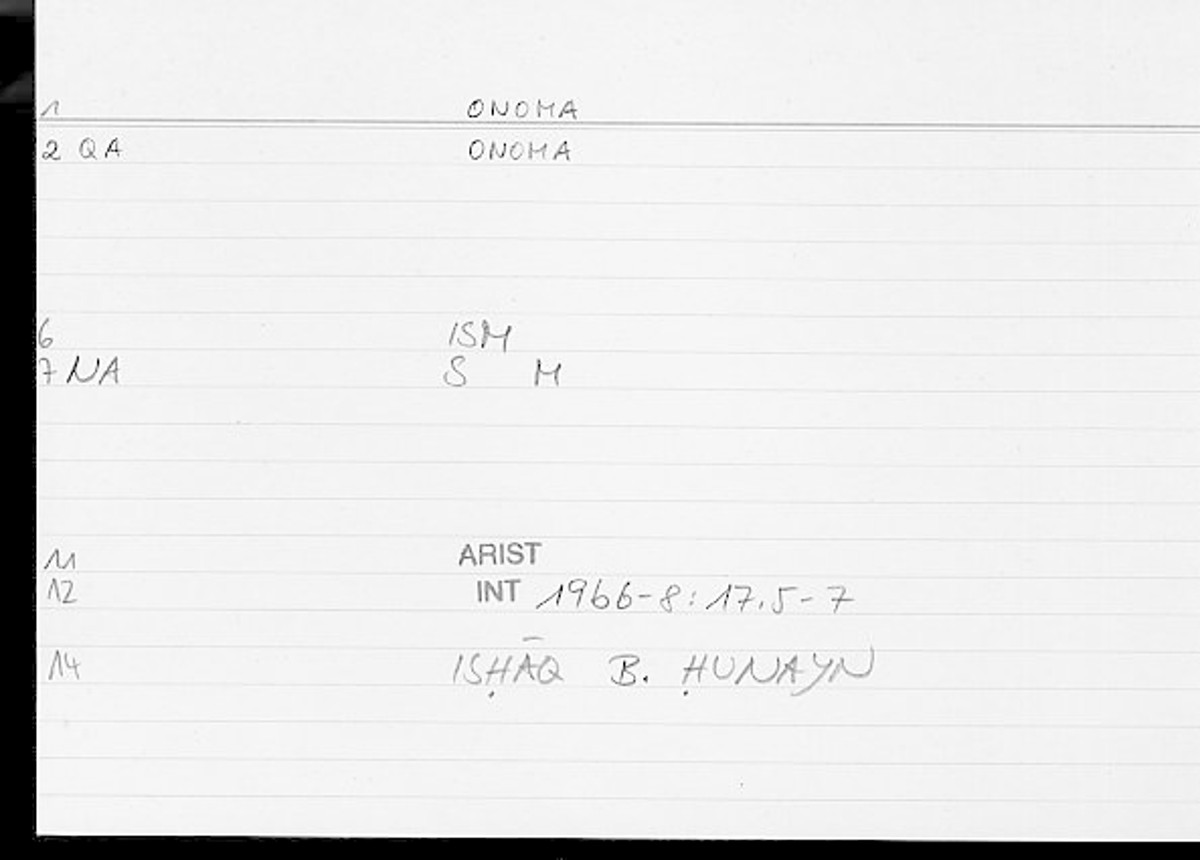 1 ONOMA
2 QA ONOMA
6 ISM
7 NA S M
11 ARIST
12 INT 1966-8:17.5-7
14 ISḤĀQ B. ḤUNAYN